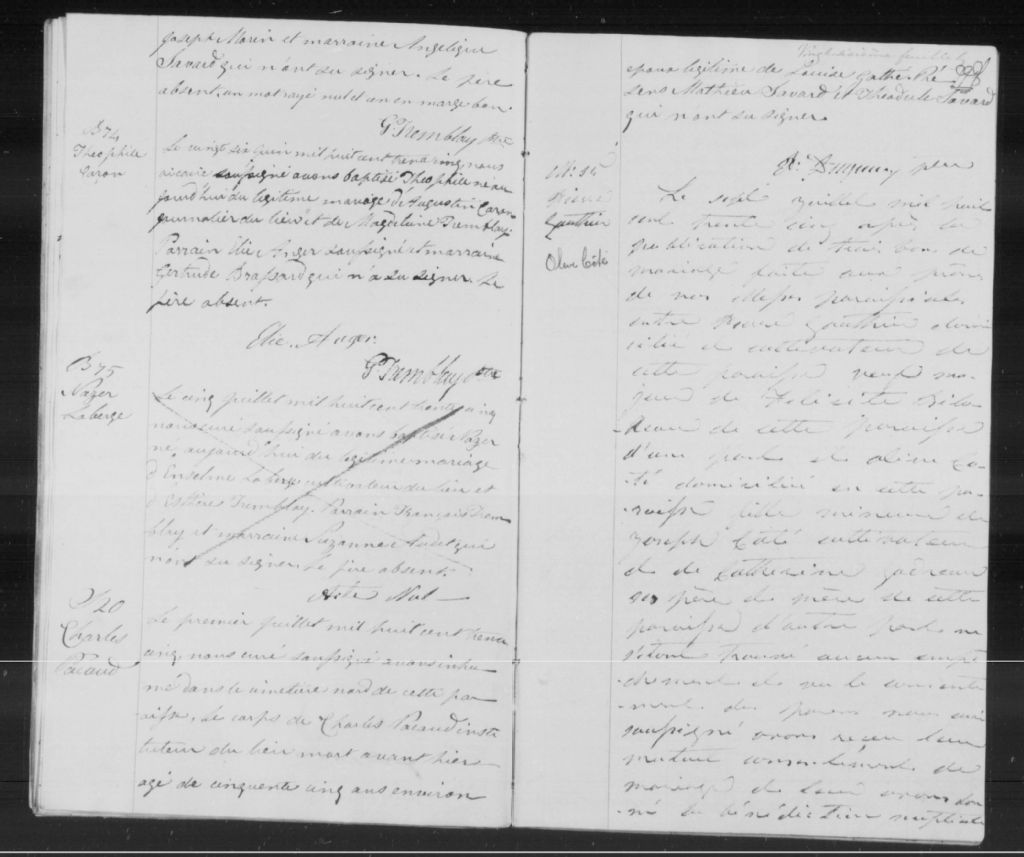 Joseph Morin et marraine Angelique
Savard qui n'ont su signer. Le pere
absent. un mot rayé nul et un en marge bon.
G. Tremblay ptre
B 74
Theophile
Caron
Le vingt six juin mil huit cent trente cinq nous
vicaire soussigné avons baptisé Theophile né au
jourd'hui du legitime mariage d'Augustin Caron
journalier du lieu et de Magdelaine Tremblay.
Parrain Elie Anger soussigné et marraine
Gertrude Brassard qui n'a su signer. Le
père absent.
Elie. Auger.
G. Tremblay ptre
B 75
Nazer
Laberge
Le cinq juillet mil huit cent trente cinq
nous curé soussigné avons baptisé Nazer
né aujourd'hui du legitime mariage
d'Enselme Laberge cultivateur du lieu et
d'Esthères Tremblay. Parrain François Trem
blay et marraine Suzanne Audet qui
n'ont su signer le père absent.
Acte Nul
S 20
Charles
Pacaud
Le premier juillet mil huit cent trente
cinq, nous curé soussigné avons inhu
mé dans le cimetière nord de cette par
aisse, le corps de Charles Pacaud insti
tuteur du lieu mort avant hier
agé de cinquante cinq ans environ
époux legitime de Louise Pré
sens Mathieu Savard et Theodule Savard
qui n'ont su signer.
ptre
M. 15
Pierre
Gauthier
Olive Côté
Le sept juillet mil huit
cent trente cinq après la
publication de trois bans de
mariage faite aux prônes
de nos messes paroissiales
entre Pierre Gauthier domi
cilié et cultivateur de
cette paroisse veuf ma-
jeur de Felicité Bilo-
deau de cette paroisse
d'une part et Olive Co-
té domiciliée en cette pa-
roisse fille mineure de
Joseph Côté cultivateur
et de Catherine
ses père et mère de cette
paroisse d'autre part ne
s'étant trouvé aucun empê
chement et vu le consente
ment des parens nous curé
soussigné avons reçu leur
mutuel consentement de
mariage et leur avons don
né la bénédiction nuptiale